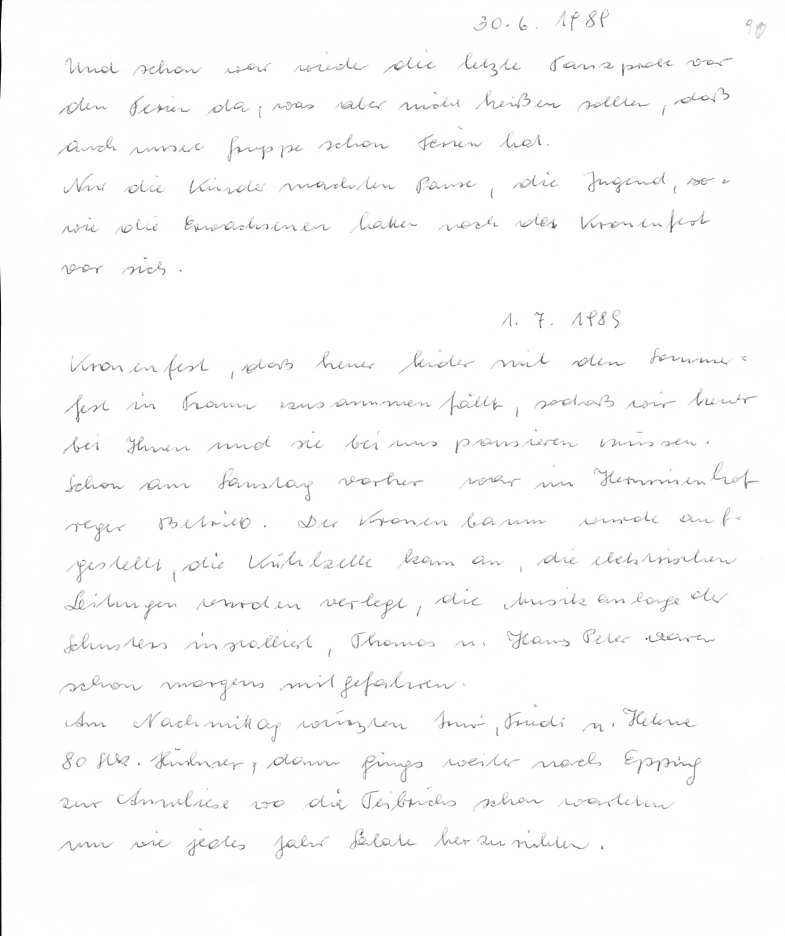 30.6. 1989
90
Und schon war wieder die letzte Tanzprobe vor
den Ferien da, was aber nicht heißen sollte, daß
auch unsere Gruppe schon Ferien hat.
Nur die Kinder machten Pause, die Jugend, so=
wie die Erwachsenen hatten noch das Kronenfest
vor sich.
1. 7. 1989
Kronenfest, daß heuer leider mit den Sommer=
fest in Traun zusammenfällt, sodaß wir heuer
bei Ihnen und sie bei uns pausieren müssen.
Schon am Samstag vorher war im Herminenhof
reger Betrieb. Der Kronenbaum wurde auf=
gestellt, die Kühlzelle kam an, die elektrischen
Leitungen wurden verlegt, die Musikanlage der
Schusters installiert, Thomas u. Hans Peter waren
schon morgens mitgefahren.
Am Nachmittag würzten Friedi u. Helene
80 Stk. Hühner, dann gings weiter nach Epping
zur Anneliese wo die schon warteten
um wie jedes Jahr Salate herzurichten.